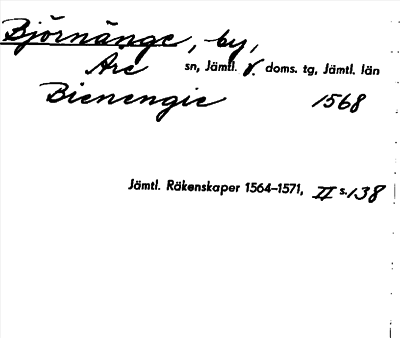 Björnänge, by,
Åre sn, Jämtl. v. doms. tg, Jämtl. län
Bienengie 1568
Jämtl. Räkenskaper 1564–1571, II s. 138